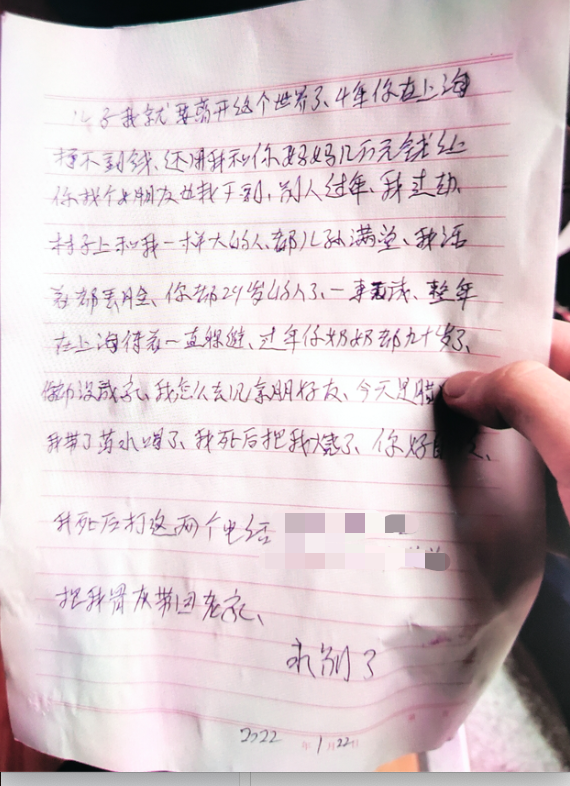 儿子我就要离开这个世界了、4年你在上海
挣不到钱、还用我和你妈妈几万元钱让
你找个女朋友也找不到、别人过年、我过劫、
村子上和我一样大的人、都儿孙满堂、我活
着都丢脸、你都29岁的人了、一事无成、整年
在上海待着一直躲避、过年你奶奶都九十岁了、
你都没成家、我怎么去见亲朋好友、今天是腊
我带了药水喝了、我死后把我烧了、你好
我死后打这两个电话
把我骨灰带回老家、
永别了
2022 年 1 月 22日